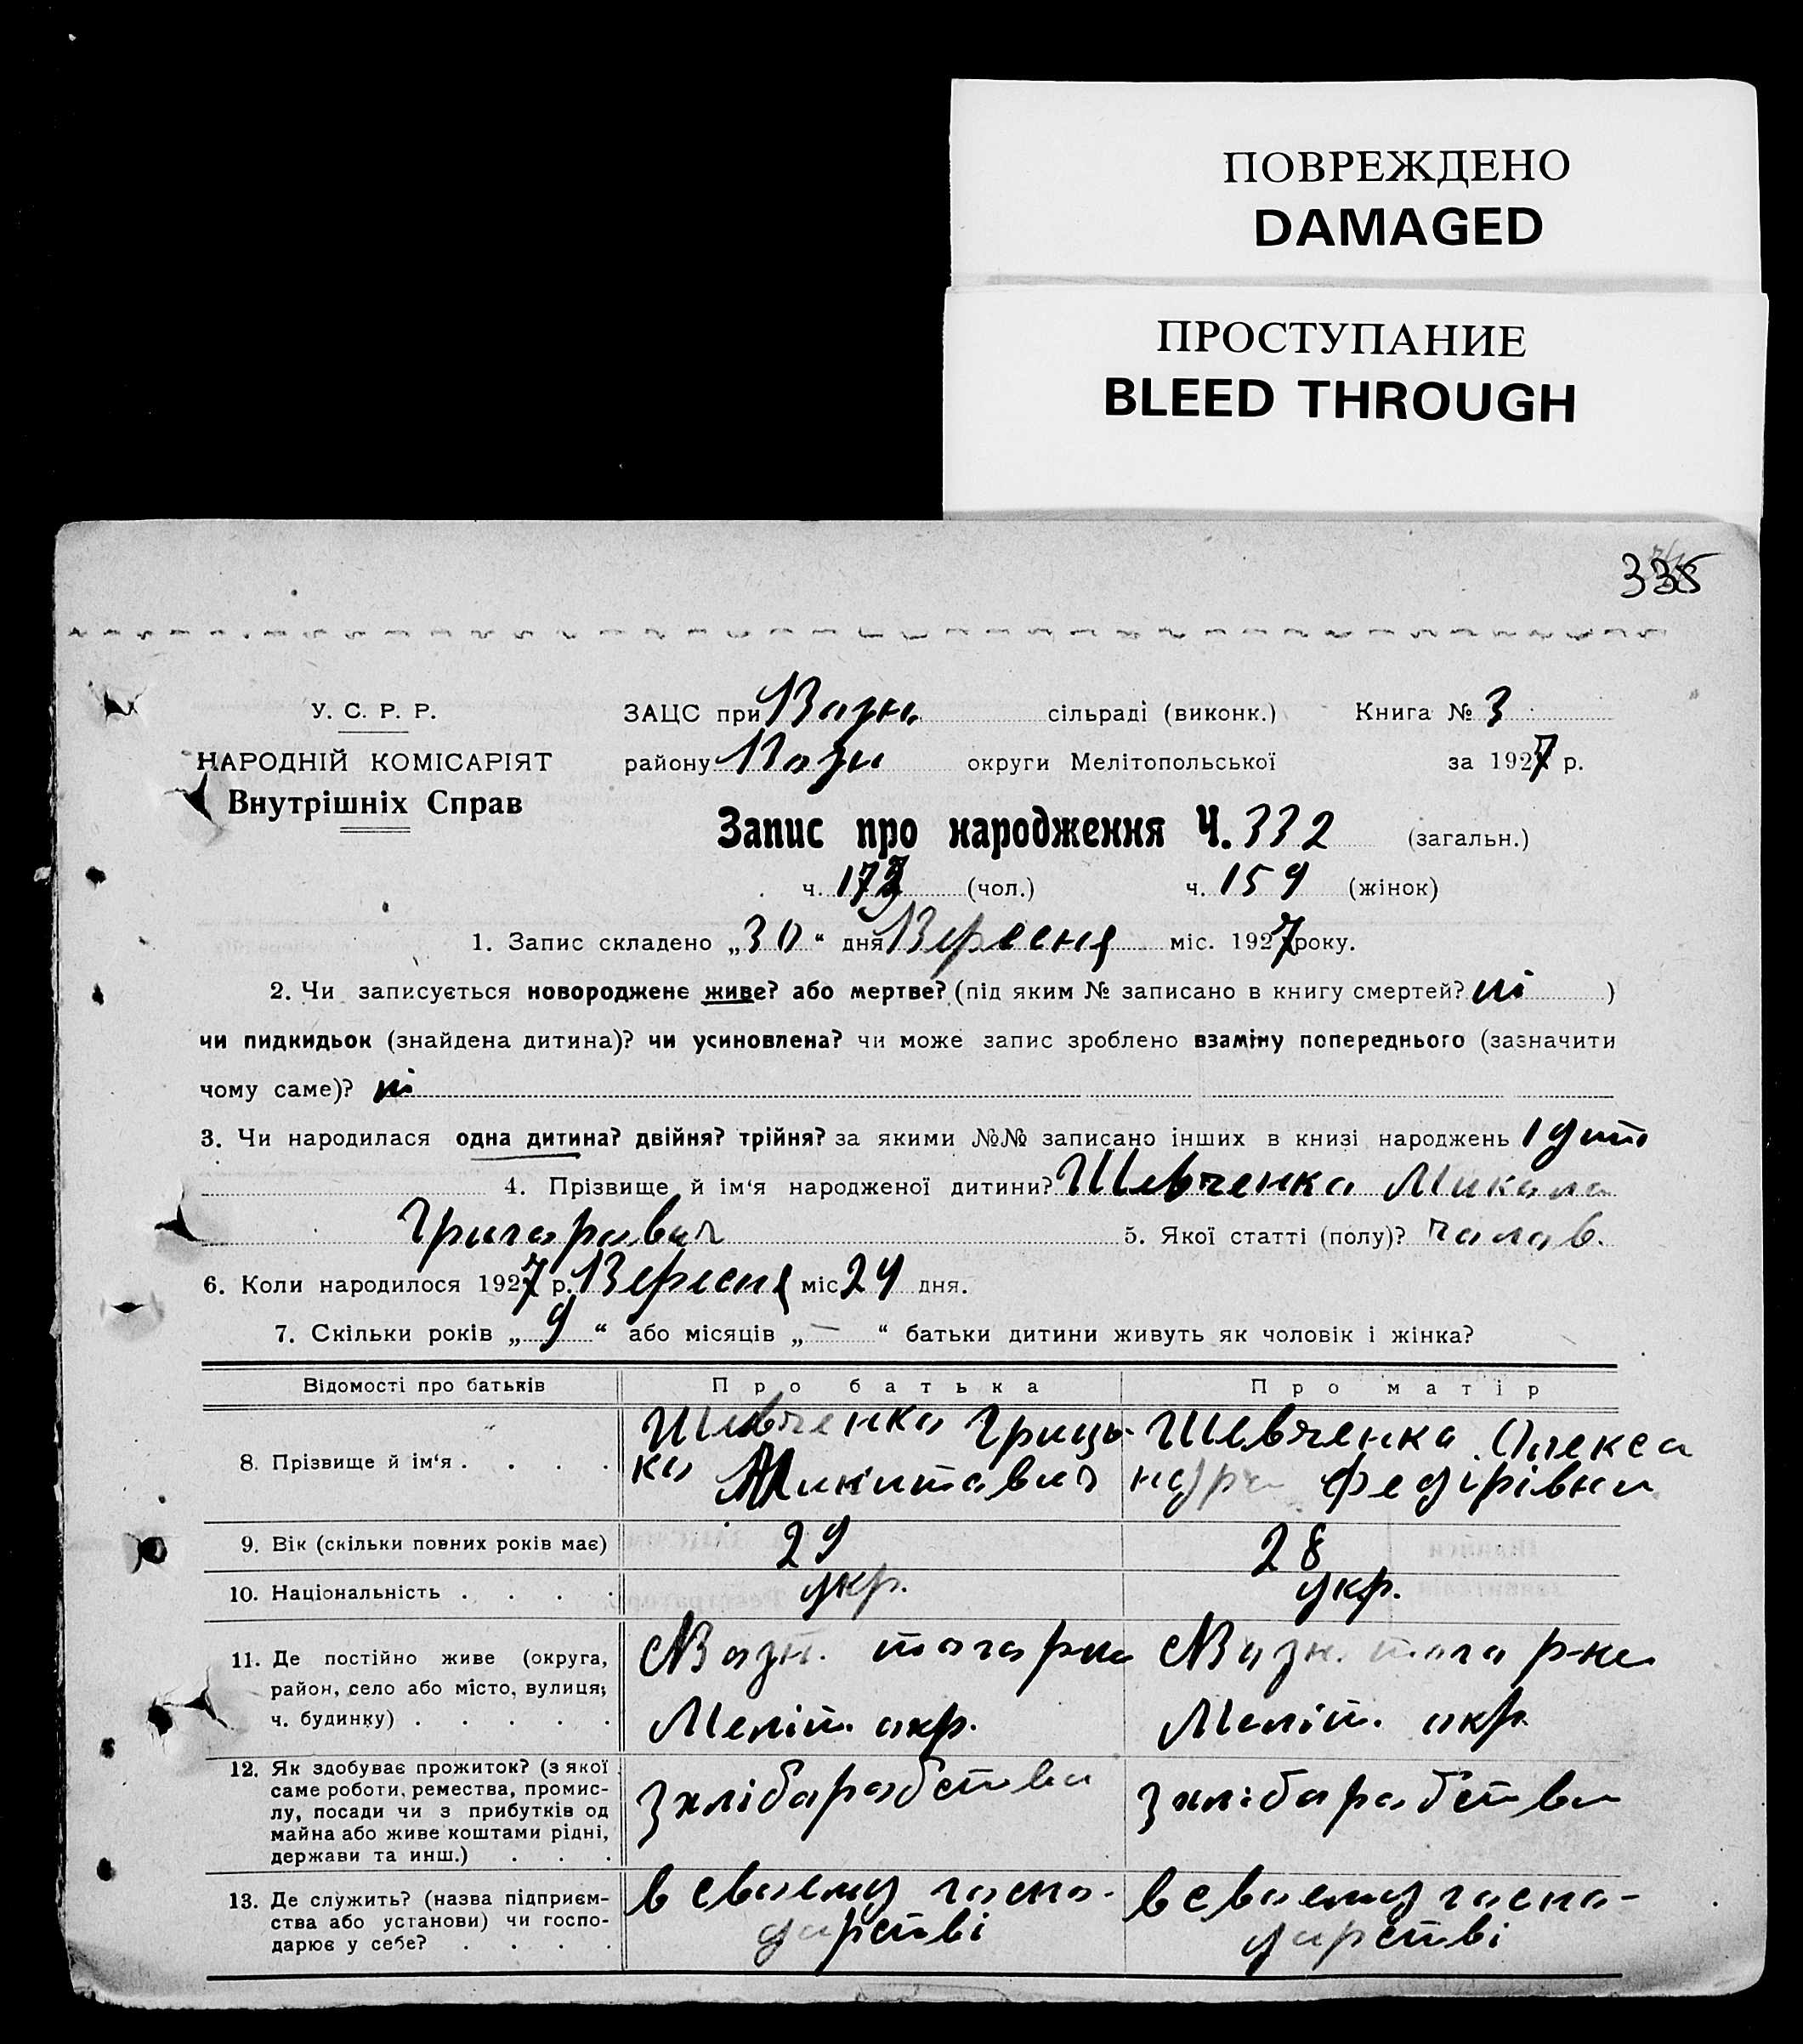 ПОВРЕЖДЕНО
DAMAGED
ПРОСТУПАНИЕ
BLEED THROUGH
335
У. С. Р. Р. ЗАЦС при Возн. сільраді (виконк.) Книга № 3
НАРОДНІЙ КОМІСАРІЯТ району округи Мелітопольської за 1927 р.
Внутрішніх Справ
Запис про народження Ч. 332 (загальн.)
ч. 173 (чол.) ч. 159 (жінок)
1. Запис складено „30“ дня Вересня міс. 1927 року.
2. Чи записується новороджене живе? або мертве? (під яким № записано в книгу смертей? ні )
чи пидкидьок (знайдена дитина)? чи усиновлена? чи може запис зроблено взаміну попереднього (зазначити
чому саме)? ні
3. Чи народилася одна дитина? двійня? трійня? за якими №№ записано інших в книзі народжень 1 дит
4. Прізвище й ім‘я народженої дитини? Шевченко Микола
Григорович 5. Якої статті (полу)? чолов.
6. Коли народилося 1927 р. Вересня міс 24 дня.
7. Скільки років „ 9 “ або місяців „ — “ батьки дитини живуть як чоловік і жінка?
Відомості про батьків Про батька Про матір
8. Прізвище й ім‘я . . . . Шевченко Гриць- Шевченко Олекса
ко Микитович ндра Федірівна
9. Вік (скільки повних років має) 29 28
10. Національність . . . . укр. укр.
11. Де постійно живе (округа, Возн. Возн.
район, село або місто, вулиця;
ч. будинку) . . . . . Меліт. окр. Меліт. окр.
12. Як здобуває прожиток? (з якої
саме роботи, ремества, промис-
лу, посади чи з прибутків од З хліборобства З хліборобства
майна або живе коштами рідні,
держави та инш.) . . .
13. Де служить? (назва підприєм- в своему госпо- в своему госпо-
ства або установи) чи госпо- дарстві дарстві
дарює у себе? . . . .